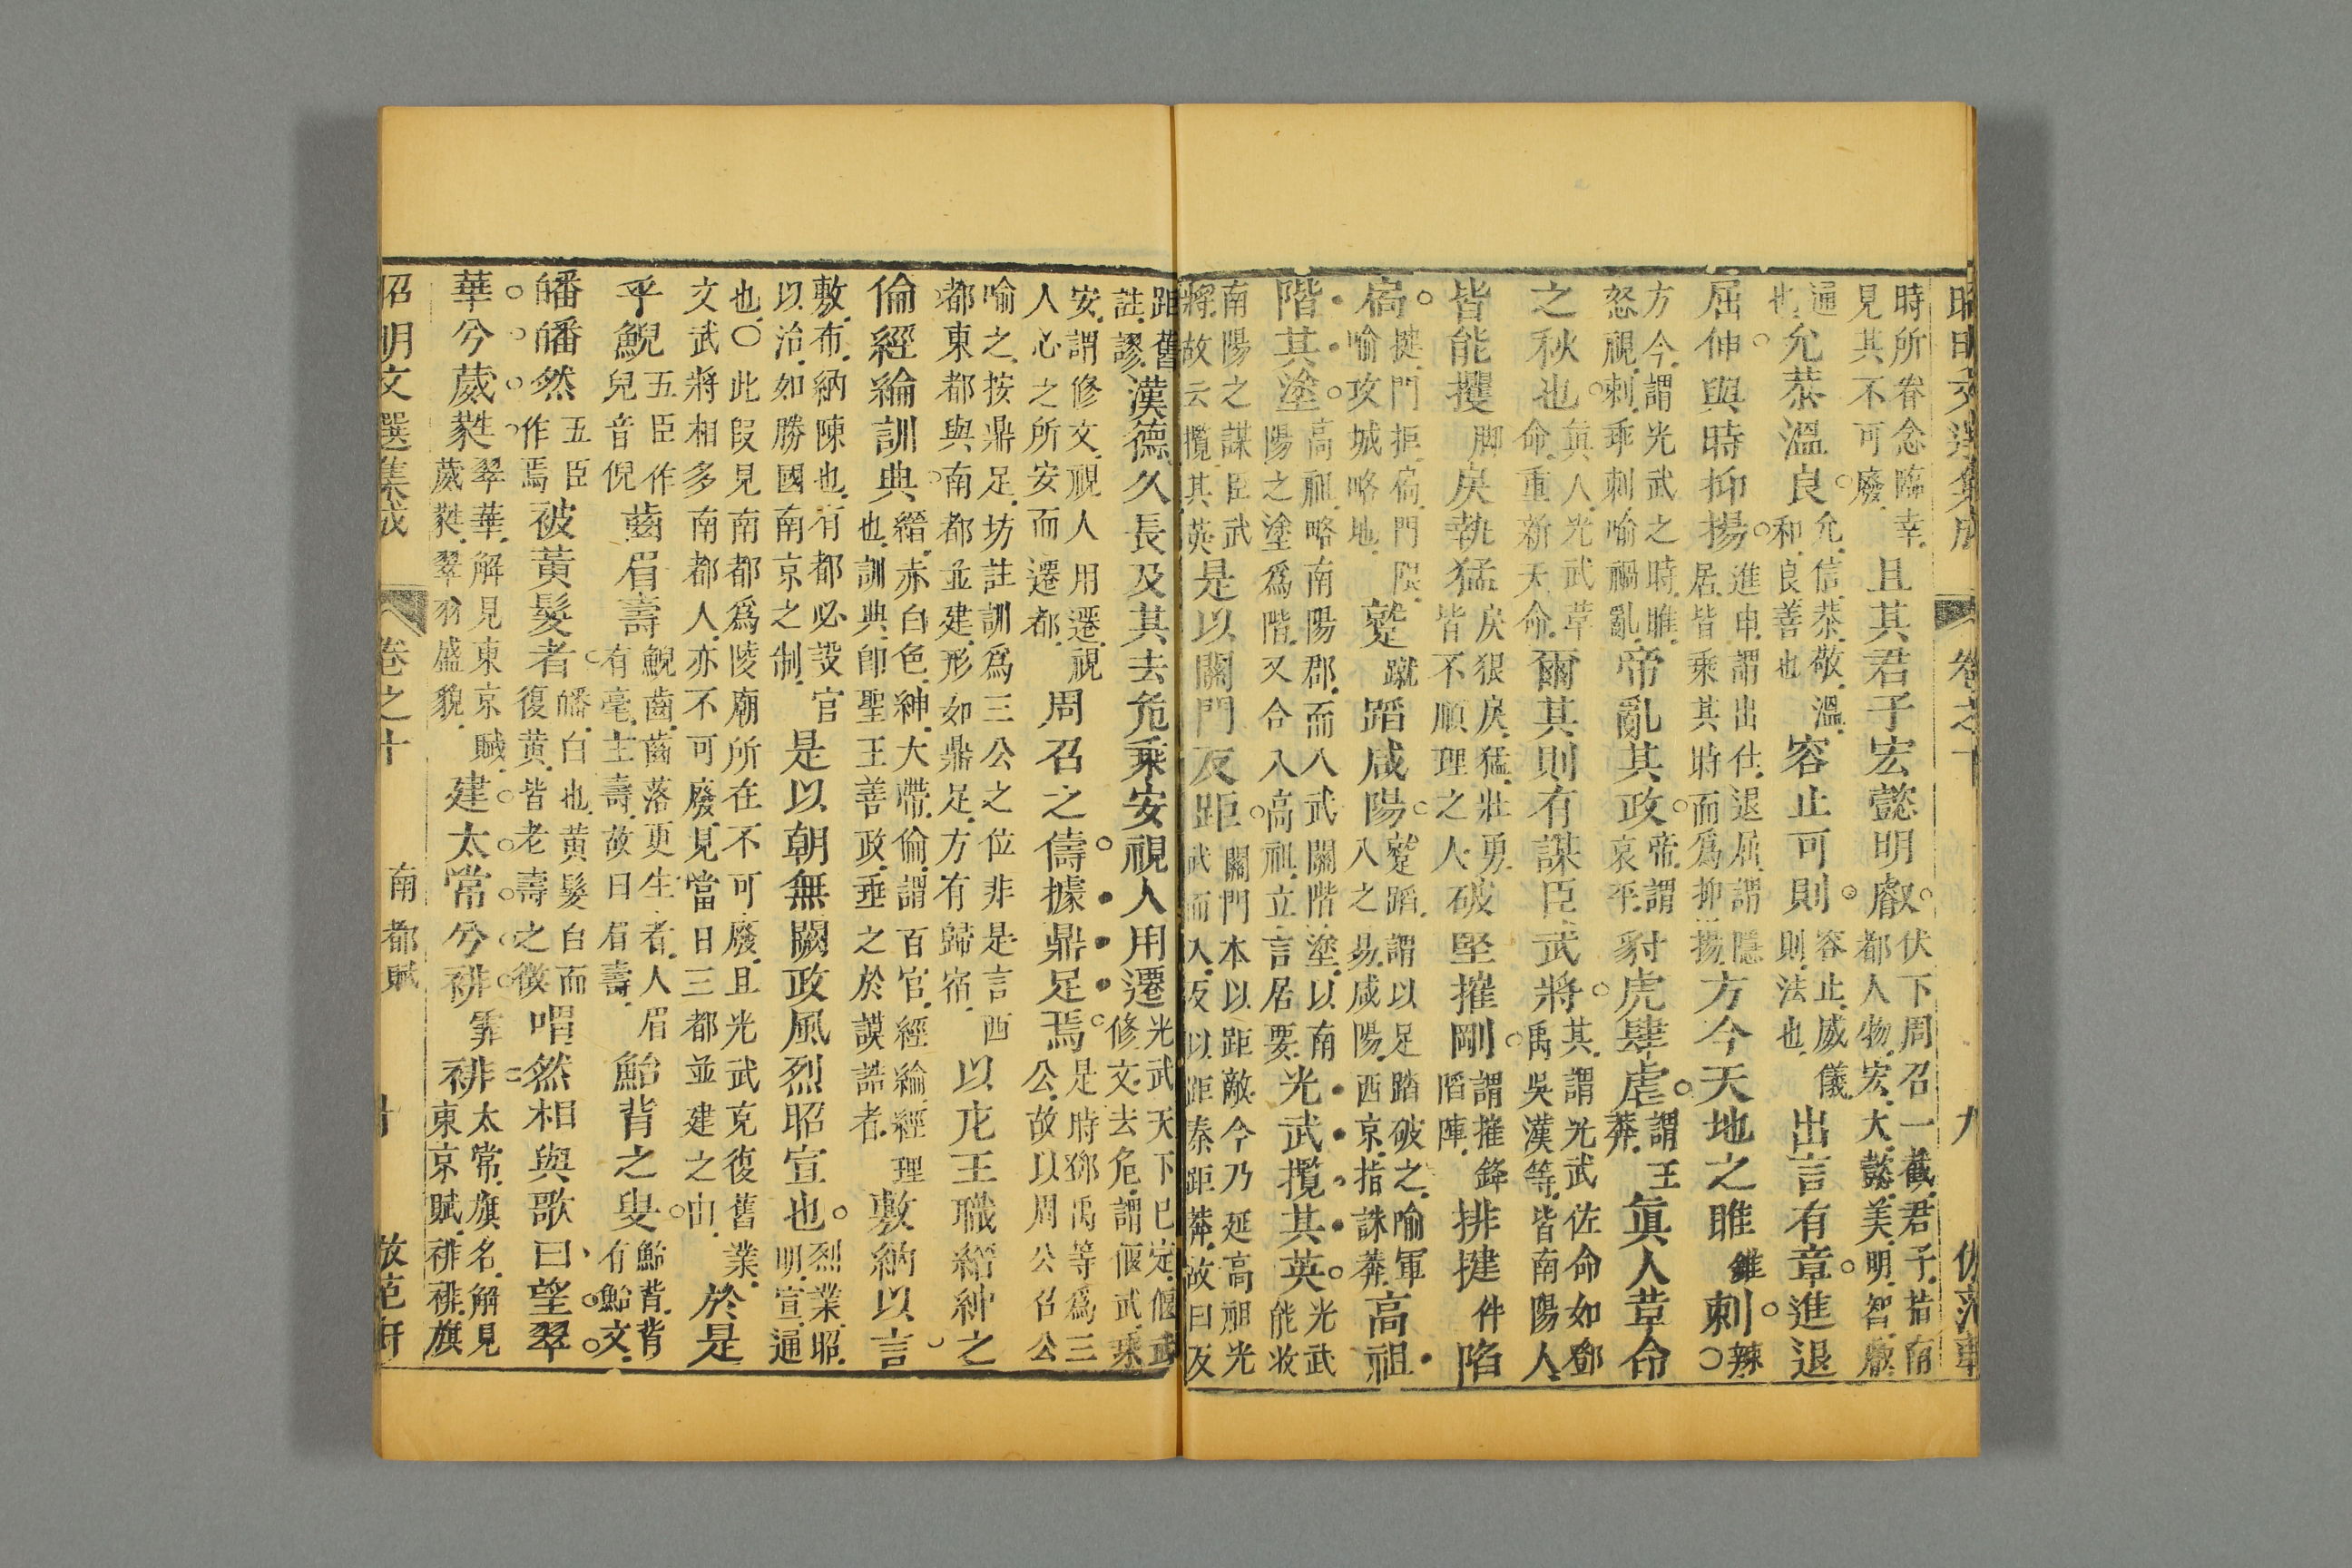 昭明文選集成 卷之十 九 倣范軒
時所眷念臨幸見其不可廢且其君子宏懿明叡伏下周召一截君子指有都人物宏大懿美明智叡
通也允恭溫良允信恭敬溫和良善也容止可則容止威儀則法也出言有章進退
屈伸與時抑揚進申謂出仕退屈謂隱居皆乘其時而爲抑揚方今天地之睢錐剌辣〇
方今謂光武之時睢怒視剌乖剌喻禍亂帝亂其政帝謂哀平豺虎肆虐謂王莽眞人革命
之秋也眞人光武革命重新天命爾其則有謀臣武將其謂光武佐命如鄧禹吳漢等皆南陽人
皆能攫脚戾執猛戾狠戾猛壯勇皆不順理之人破堅摧剛謂摧鋒陷陣排揵件陷
扃揵門拒扃門限喻攻城略地蹵蹴蹈咸陽蹵蹈謂以足踏破之喻軍入之易咸陽西京指誅莽高祖
階其塗高祖略南陽郡而入武關階塗以南陽之塗爲階又合入高祖立言居要光武攬其英光武能收
南陽之謀臣武將故云攬其英是以關門反距關門本以距敵今乃延高祖光武而入反以距秦距莽故曰反
距舊註謬漢德久長及其去危乘安視人用遷光武天下已定偃武修文去危謂偃武乘
安謂修文視人用遷視人心之所安而遷都周召之儔據鼎足焉是時鄧禹等爲三公故以周公召公
喻之按鼎足坊註訓爲三公之位非是言西都東都與南都並建形如鼎足方有歸宿以庀王職縉紳之
倫經綸訓典縉赤白色紳大帶倫謂百官經綸經理也訓典卽聖王善政垂之於謨誥者敷納以言
敷布納陳也有都必設官以治如勝國南京之制是以朝無闕政風烈昭宣也烈業昭明宣通
也〇此段見南都爲陵廟所在不可廢且光武克復舊業文武將相多南都人亦不可廢見當日三都並建之由於是
乎鯢五臣作兒音倪齒眉壽鯢齒齒落更生者人眉有毫主壽故曰眉壽鮐背之叟鮐背背有鮐文
皤皤然五臣作焉被黃髮者皤白也黃髮白而復黃皆老壽之徵喟然相與歌曰望翠
華兮葳蕤翠華解見東京賦葳蕤翠羽盛貌建太常兮裶霏裶太常旗名解見東京賦裶裶旗
昭明文選集成 卷之十 南都賦 十 倣范軒